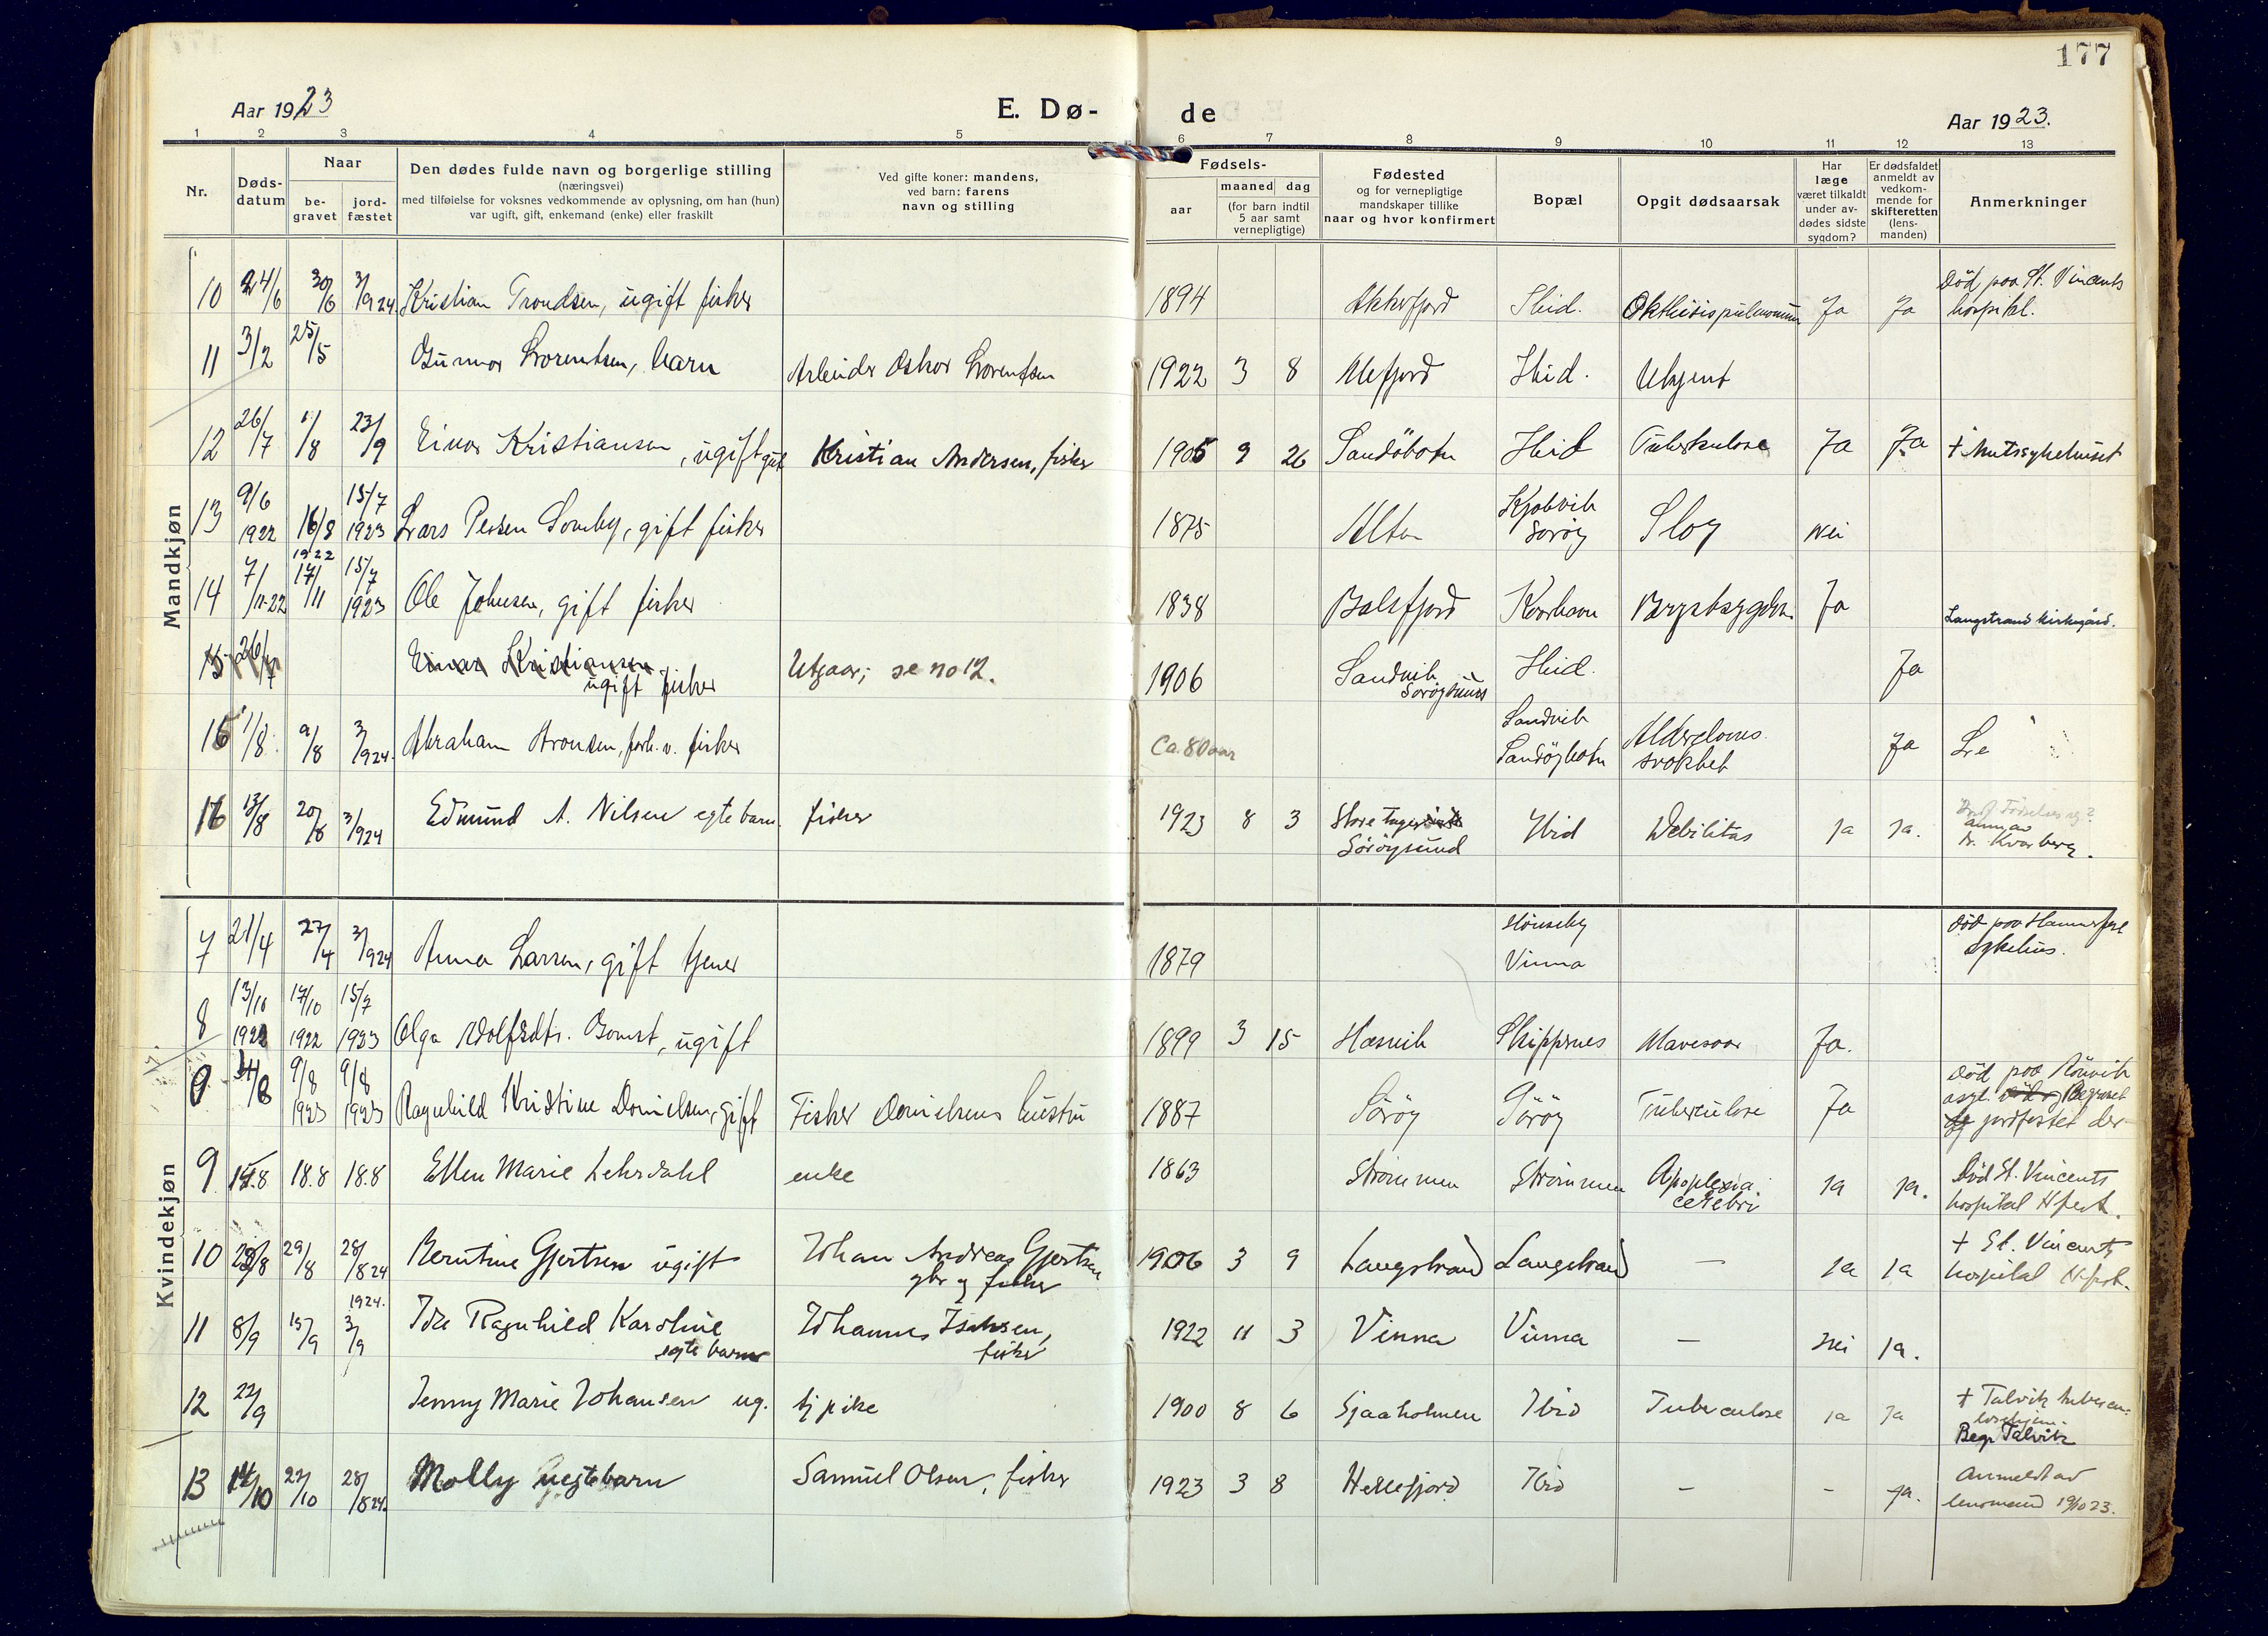 177
Aar 1923
E. Dø-
de
Aar 1923.
1 2 3 4 5 6 7 8 9 10 11 12 13
Nr.
Døds-
datum
Naar
be-
gravet
jord-
fæstet
Den dødes fulde navn og borgerlige stilling
(næringsvei)
med tilføielse for voksnes vedkommende av oplysning, om han (hun)
var ugift, gift, enkemand (enke) eller fraskilt
Ved gifte koner: mandens,
ved barn: farens
navn og stilling
Fødsels-
aar
maaned dag
(for barn indtil
5 aar samt
vernepligtige)
Fødested
og for vernepligtige
mandskaper tillike
naar og hvor konfirmert
Bopæl
Opgit dødsaarsak
Har
læge
været tilkaldt
under av-
dødes sidste
sygdom?
Er dødsfaldet
anmeldt av
vedkom-
mende for
skifteretten
(lens-
manden)
Anmerkninger
Mandkjøn
10 24/6 30/6 3/9 24. Kristian Trondsen, ugift fisker 1894 Akkerfjord Ibid. Ja Ja Død paa St. Vincents
hospital.
11 3/2 25/5 Gunnar Lorentsen, barn Arbeider Oskar Lorentsen 1922 3 8 Ibid. Ukjent
12 26/7 1/8 23/9 Einar Kristiansen, ugift gut Kristian Andersen, fisker 1905 9 26 Sandöbotn Ibid Tuberkulose Ja Ja + Amtssykehuset
13 9/6 1922 16/8 1922 15/7 1923 Lars Persen Somby, gift fisker 1875 Alten Sorøy Slag Nei
14 7/11-22 17/11 15/7 1923 Ole Johnsen, gift fisker 1838 Balsfjord Kvarhavn Brystsygdom Ja Langstrand kirkegård.
15 26/7 Einar Kristiansen
ugift fisker Utgaar; se no 12. 1906 Sandvik
Sorøysund Ibid. Ja
15 1/8 9/8 3/9 24. Abraham Aronsen, fisker Ca. 80 aar Sandvik
Sandøybotn Alderdoms
svakhet Ja
16 13/8 20/8 3/9 24 Edmund A. Nilsen egte barn. fisker 1923 8 3 Store
Sörøysund Ibid Debilitas ja ja. anm av
Kvarberg.
Kvindekjøn
7 21/4 27/4 3/9 24 Anna Larsen, gift tjener 1879 Hönseby
Vinna Død paa Hammerfest
sykehus.
8 13/10 1922 17/10 1922 15/7 1923 Olga Adolfsdtr. ugift 1899 3 15 Hasvik Skippernes Mavesaar Ja.
9 9/8 1923 9/8 1923 Ragnhild Kristine Danielsen, gift Fisker Danielsens hustru 1887 Sörøy Sörøy Tuberculose Ja Død paa Rönvik
asyl. Begravet
og jordfestet der
9 14.8 18.8 18.8 Ellen Marie Lehrdahl enke 1863 Strömmen Strömmen Apoplexia
cerebri ja ja. Död St. Vincents
hospital Hfest.
10 23/8 29/8 28/8 24 Berntine Gjertsen ugift Johan Andreas Gjertsen
gbr og fisker 1906 3 9 Langstrand Langstrand — ja ja + St. Vincents
hospital Hfest.
11 8/9 15/9 1924. 3/9 Ida Ragnhild Karoline
egte barn Johannes Isaksen,
fisker 1922 11 3 Vinna Vinna — nei ja.
12 22/9 Jenny Marie Johansen ug. tj pike 1900 8 6 Sjaaholmen Ibid Tuberculose ja ja + Talvik tubercu-
losehjem.
Begr Talvik
13 14/10 22/10 28/8 24. Molly uegte barn Samuel Olsen, fisker 1923 3 8 Hellefjord Ibid — - ja. Anmeldt av
lensmand 19/10 23.